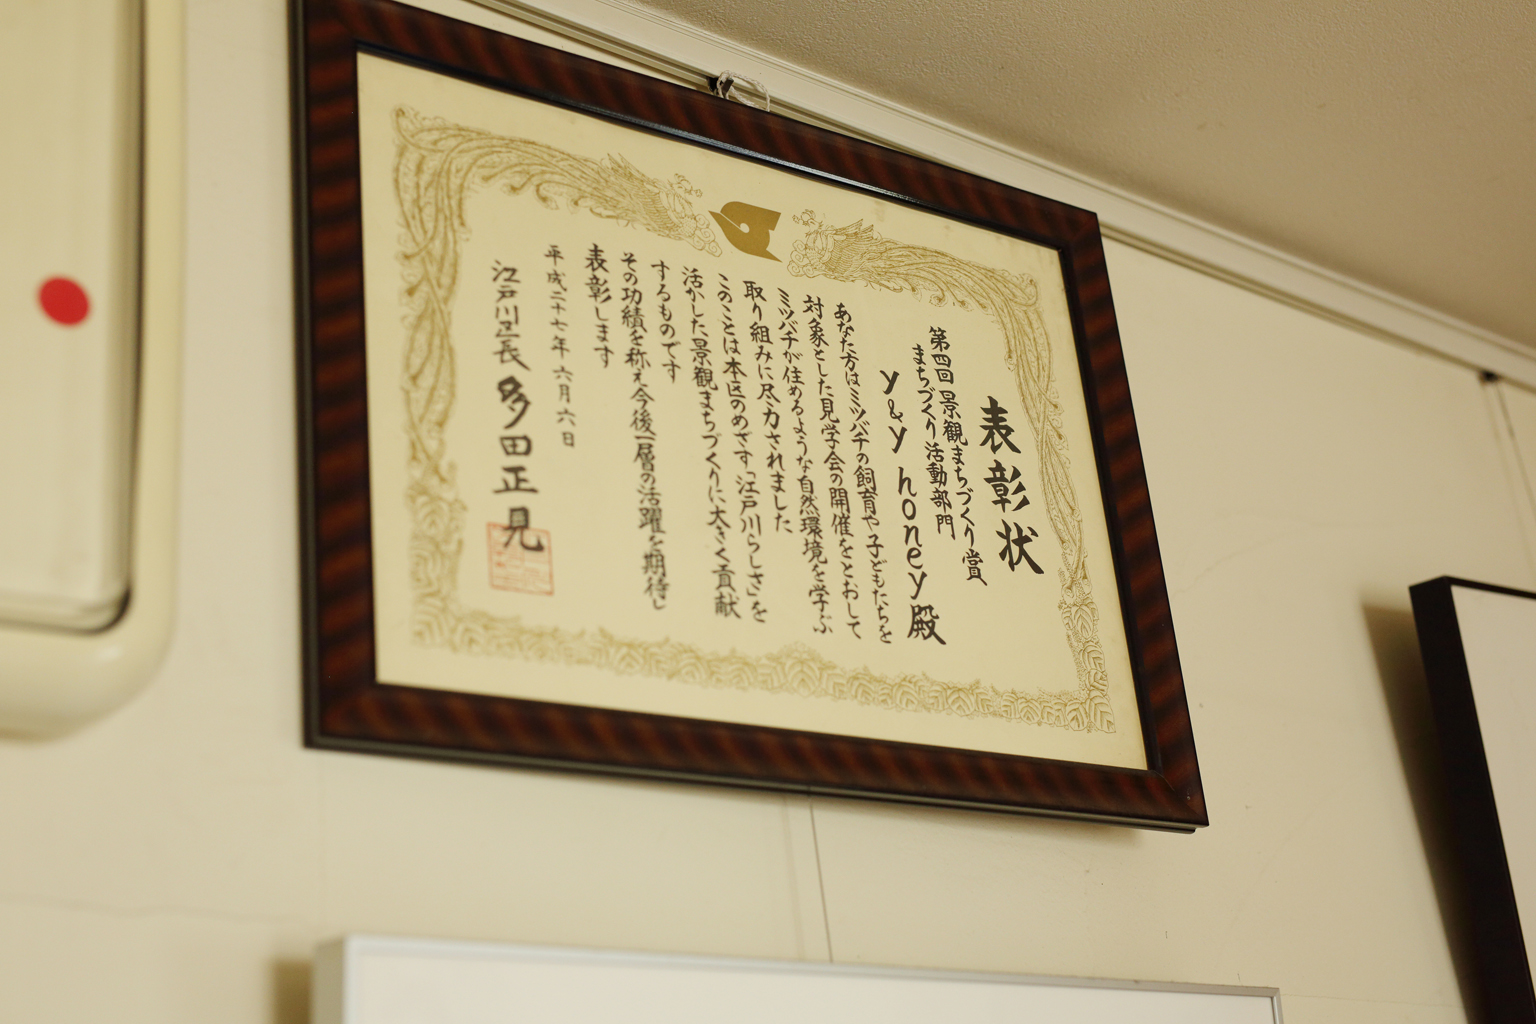 表彰状
第四回 景観まちづくり賞
まちづくり活動部門
y&y honey 殿
あなた方はミツバチの飼育や子どもたちを
対象とした見学会の開催をとおして
ミツバチが住めるような自然環境を学ぶ
取り組みに尽力されました
このことは本区のめざす「江戸川らしさ」を
活かした景観まちづくりに大きく貢献
するものです
その功績を称え今後一層の活躍を期待し
表彰します
平成二十七年 六月六日
江戸川区長 多田正見